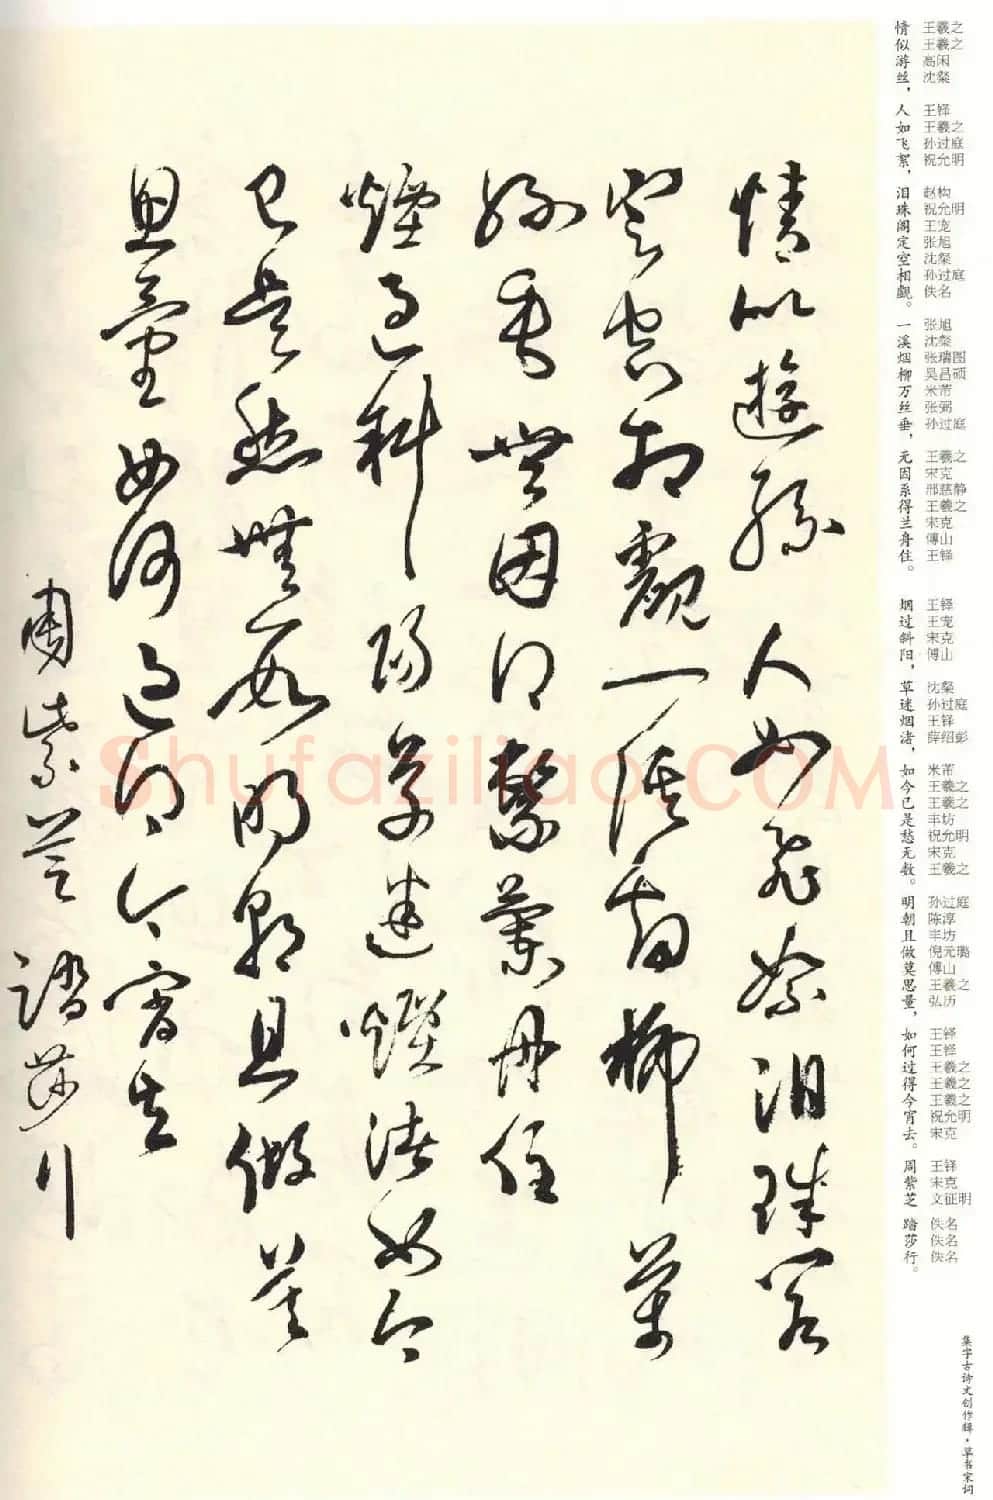 情似遊絲人如飛絮泪珠閣
定空相覷一溪烟柳萬
絲垂無因得繫蘭舟住
煙過斜陽草迷煙渚如今
已是愁無數明朝且做莫
思量如何過得今宵去
周紫芝 踏莎行
情 王羲之
似 王羲之
游 高闲
丝， 沈粲
人 王铎
如 王羲之
飞 孙过庭
絮， 祝允明
泪 赵构
珠 祝允明
阁 王宠
定 张旭
空 沈粲
相 孙过庭
觑。 佚名
一 张旭
溪 沈粲
烟 张瑞图
柳 吴昌硕
万 米芾
丝 张弼
垂， 孙过庭
无 王羲之
因 宋克
系 邢慈静
得 王羲之
兰 宋克
舟 傅山
住。 王铎
烟 王铎
过 王宠
斜 宋克
阳， 傅山
草 沈粲
迷 孙过庭
烟 王铎
渚， 薛绍彭
如 米芾
今 王羲之
已 王羲之
是 丰坊
愁 祝允明
无 宋克
数。 王羲之
明 孙过庭
朝 陈淳
且 丰坊
做 倪元璐
莫 傅山
思 王羲之
量， 弘历
如 王铎
何 王铎
过 王羲之
得 王羲之
今 王羲之
宵 祝允明
去。 宋克
周 王铎
紫 宋克
芝 文征明
踏 佚名
莎 佚名
行。 佚名
集字古诗文创作辑·草书宋词
Shufaziliao.COM